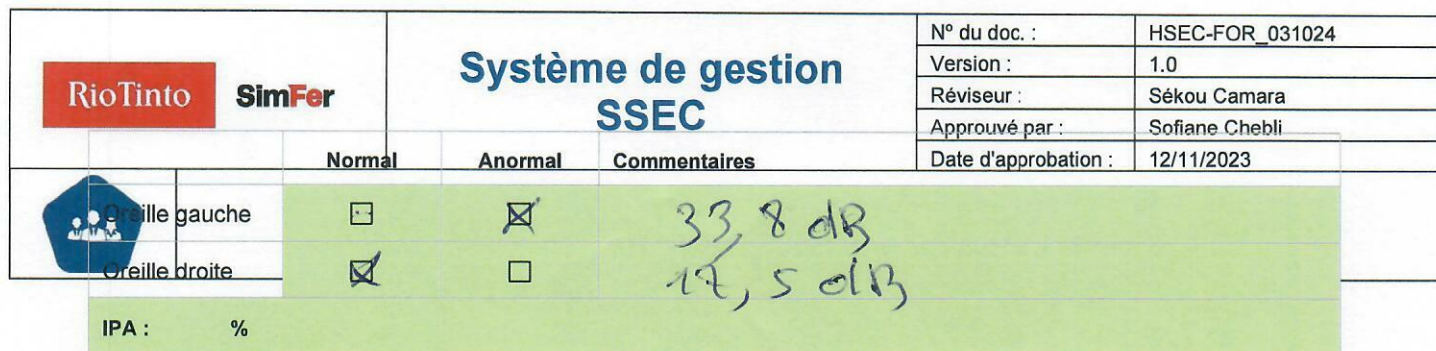 RioTinto SimFer
Système de gestion
SSEC
Nº du doc. : HSEC-FOR_031024
Version : 1.0
Réviseur : Sékou Camara
Approuvé par : Sofiane Chebli
Date d'approbation : 12/11/2023
Normal Anormal Commentaires
Oreille gauche ☐ ☒ 33,8 dB
Oreille droite ☒ ☐ 17,5 dB
IPA : %